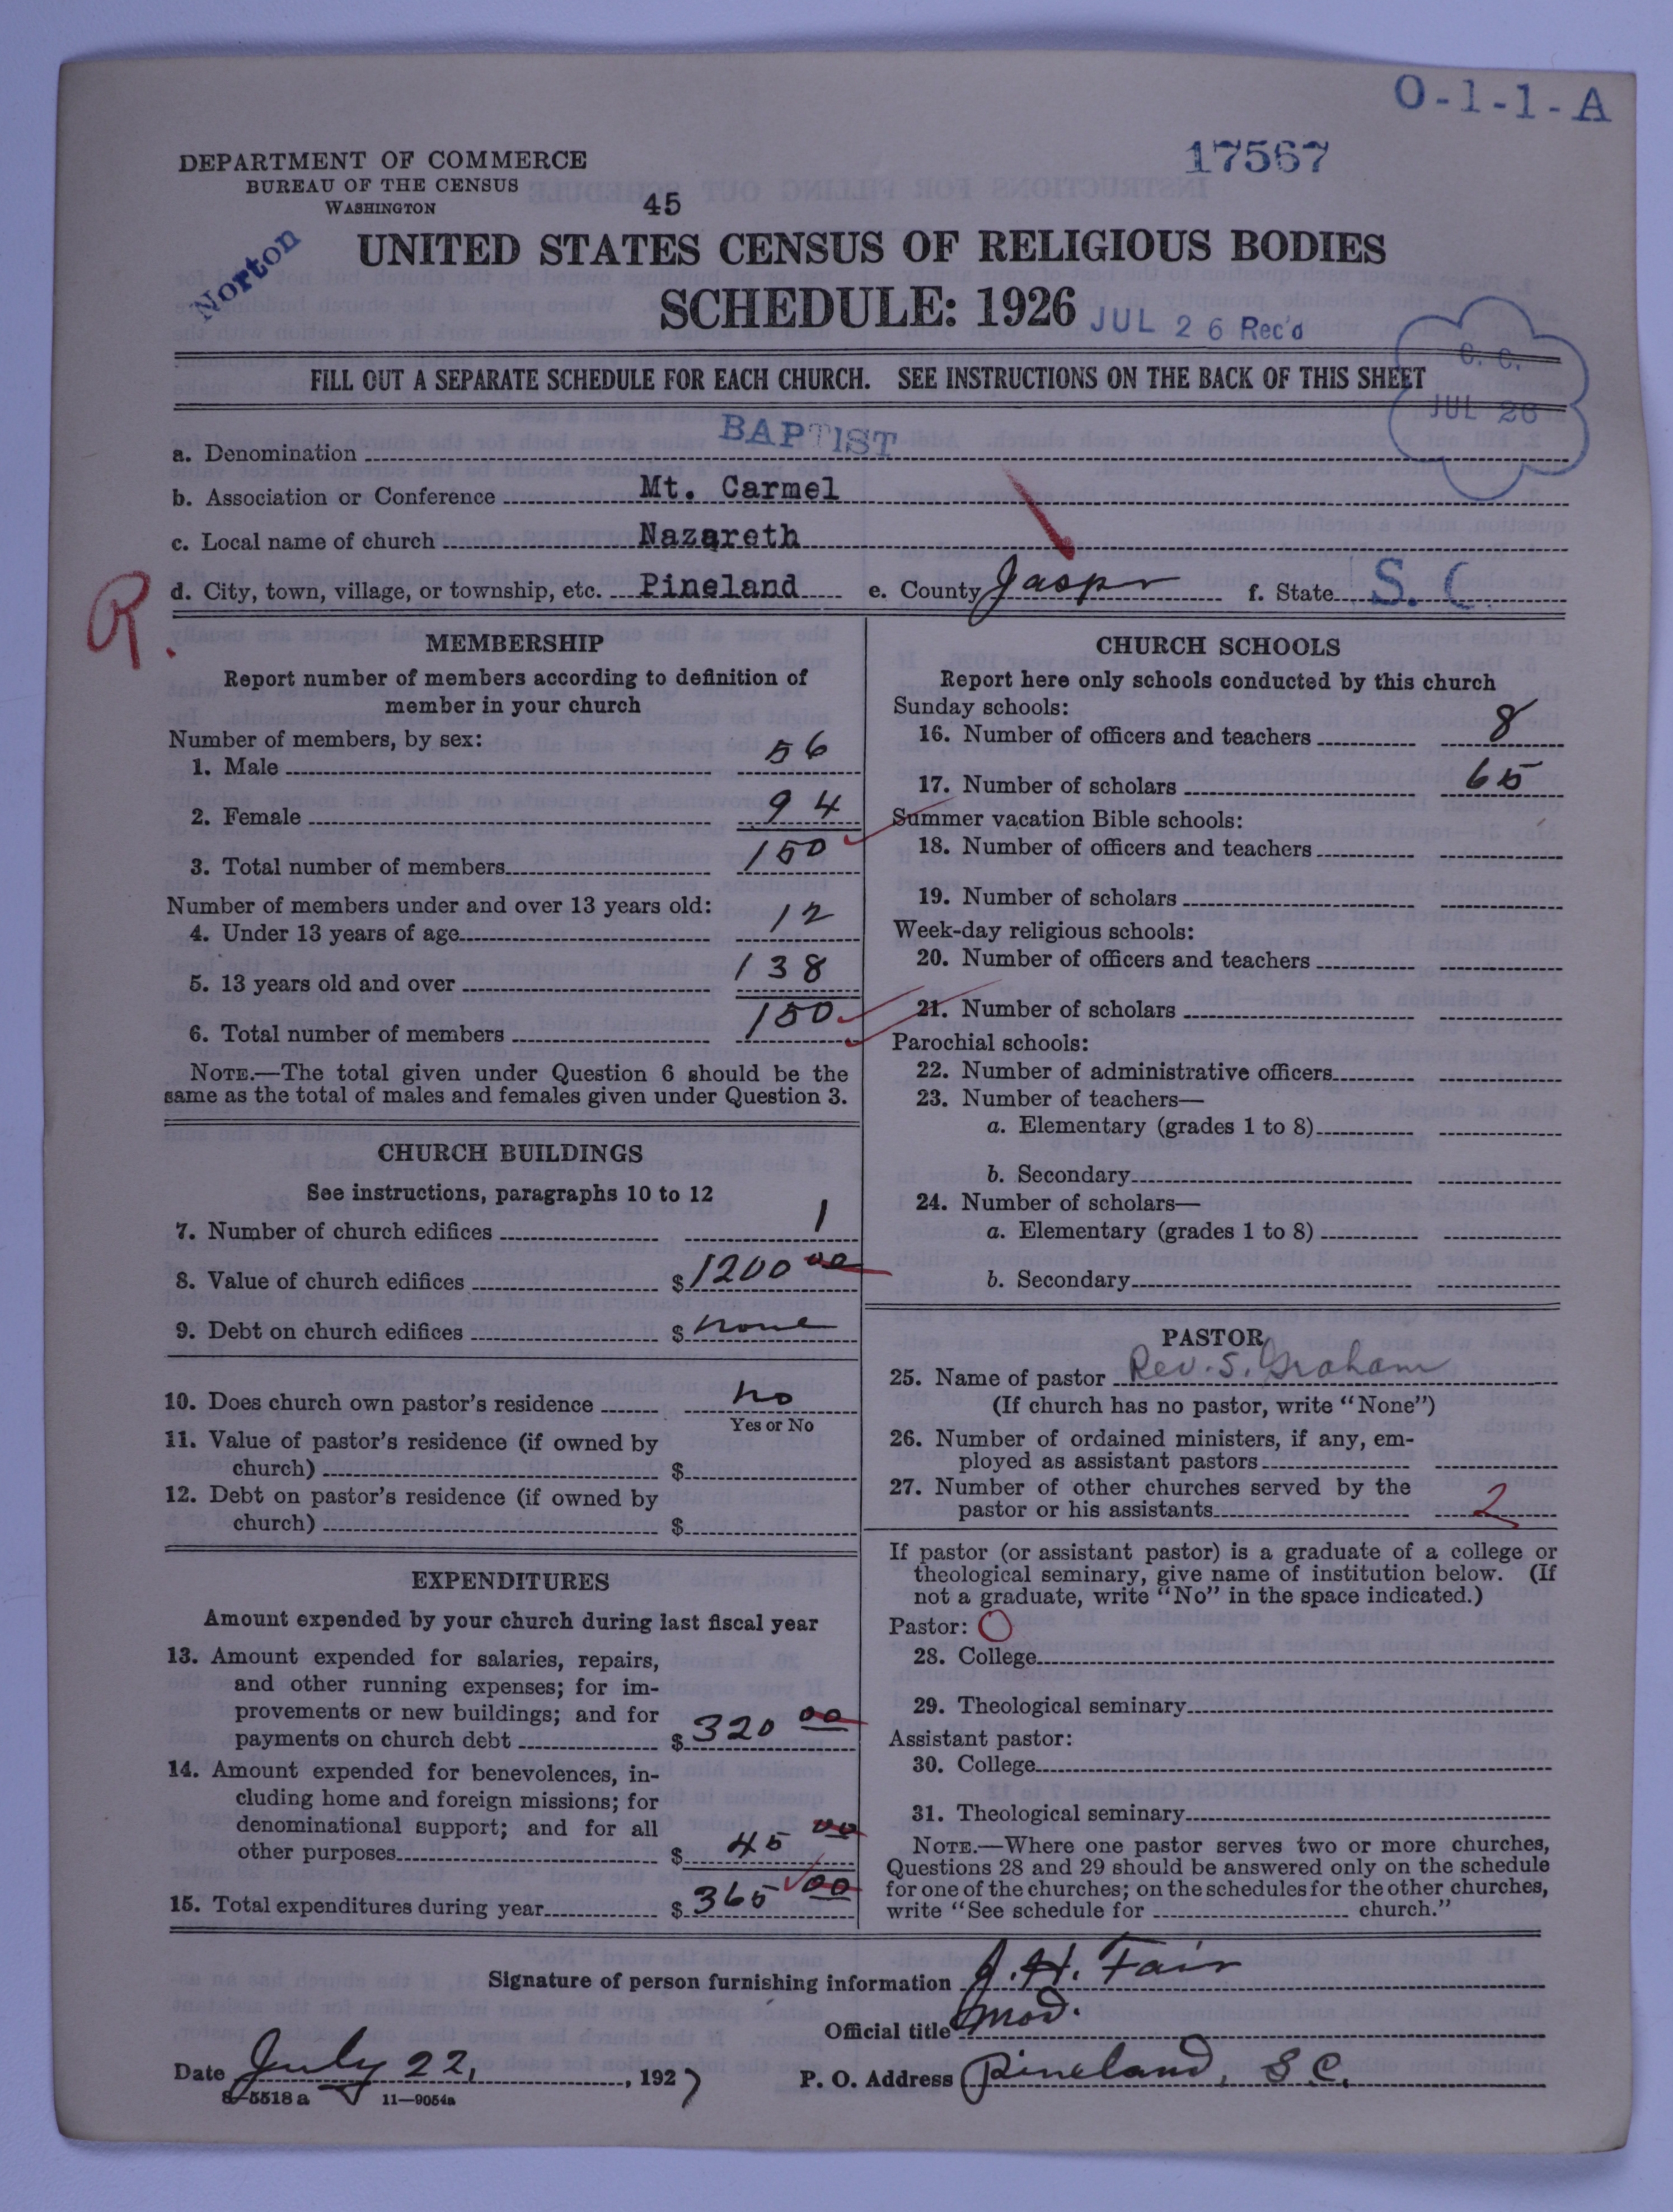 O-1-1-A
17567
DEPARTMENT OF COMMERCE
BUREAU OF THE CENSUS
WASHINGTON
45
Norton
UNITED STATES CENSUS OF RELIGIOUS BODIES
SCHEDULE: 1926
JUL 26 Rec'd
C. C.
JUL 26
FILL OUT A SEPARATE SCHEDULE FOR EACH CHURCH. SEE INSTRUCTIONS ON THE BACK OF THIS SHEET
a. Denomination BAPTIST
b. Association or Conference Mt. Carmel
c. Local name of church Nazareth
d. City, town, village, or township, etc. Pineland e. County Jasper f. State S. C.
R.
MEMBERSHIP
Report number of members according to definition of
member in your church
Number of members, by sex:
1. Male 56
2. Female 94
3. Total number of members 150
Number of members under and over 13 years old:
4. Under 13 years of age 12
5. 13 years old and over 138
6. Total number of members 150
NOTE.—The total given under Question 6 should be the
same as the total of males and females given under Question 3.
CHURCH BUILDINGS
See instructions, paragraphs 10 to 12
7. Number of church edifices 1
8. Value of church edifices $1200 00
9. Debt on church edifices $ none
10. Does church own pastor's residence no
Yes or No
11. Value of pastor's residence (if owned by
church) $
12. Debt on pastor's residence (if owned by
church) $
EXPENDITURES
Amount expended by your church during last fiscal year
13. Amount expended for salaries, repairs,
and other running expenses; for im-
provements or new buildings; and for
payments on church debt $ 320 00
14. Amount expended for benevolences, in-
cluding home and foreign missions; for
denominational support; and for all
other purposes $ 45 00
15. Total expenditures during year $ 365 00
CHURCH SCHOOLS
Report here only schools conducted by this church
Sunday schools:
16. Number of officers and teachers 8
17. Number of scholars 65
Summer vacation Bible schools:
18. Number of officers and teachers
19. Number of scholars
Week-day religious schools:
20. Number of officers and teachers
21. Number of scholars
Parochial schools:
22. Number of administrative officers
23. Number of teachers—
a. Elementary (grades 1 to 8)
b. Secondary
24. Number of scholars—
a. Elementary (grades 1 to 8)
b. Secondary
PASTOR
25. Name of pastor Rev. S. Graham
(If church has no pastor, write "None")
26. Number of ordained ministers, if any, em-
ployed as assistant pastors
27. Number of other churches served by the
pastor or his assistants 2
If pastor (or assistant pastor) is a graduate of a college or
theological seminary, give name of institution below. (If
not a graduate, write "No" in the space indicated.)
Pastor: O
28. College
29. Theological seminary
Assistant pastor:
30. College
31. Theological seminary
NOTE.—Where one pastor serves two or more churches,
Questions 28 and 29 should be answered only on the schedule
for one of the churches; on the schedules for the other churches,
write "See schedule for church."
Signature of person furnishing information J. H. Fair
Official title Mod.
Date July 22, 1927 P. O. Address Pineland, S. C.
8-5518 a 11—9054a